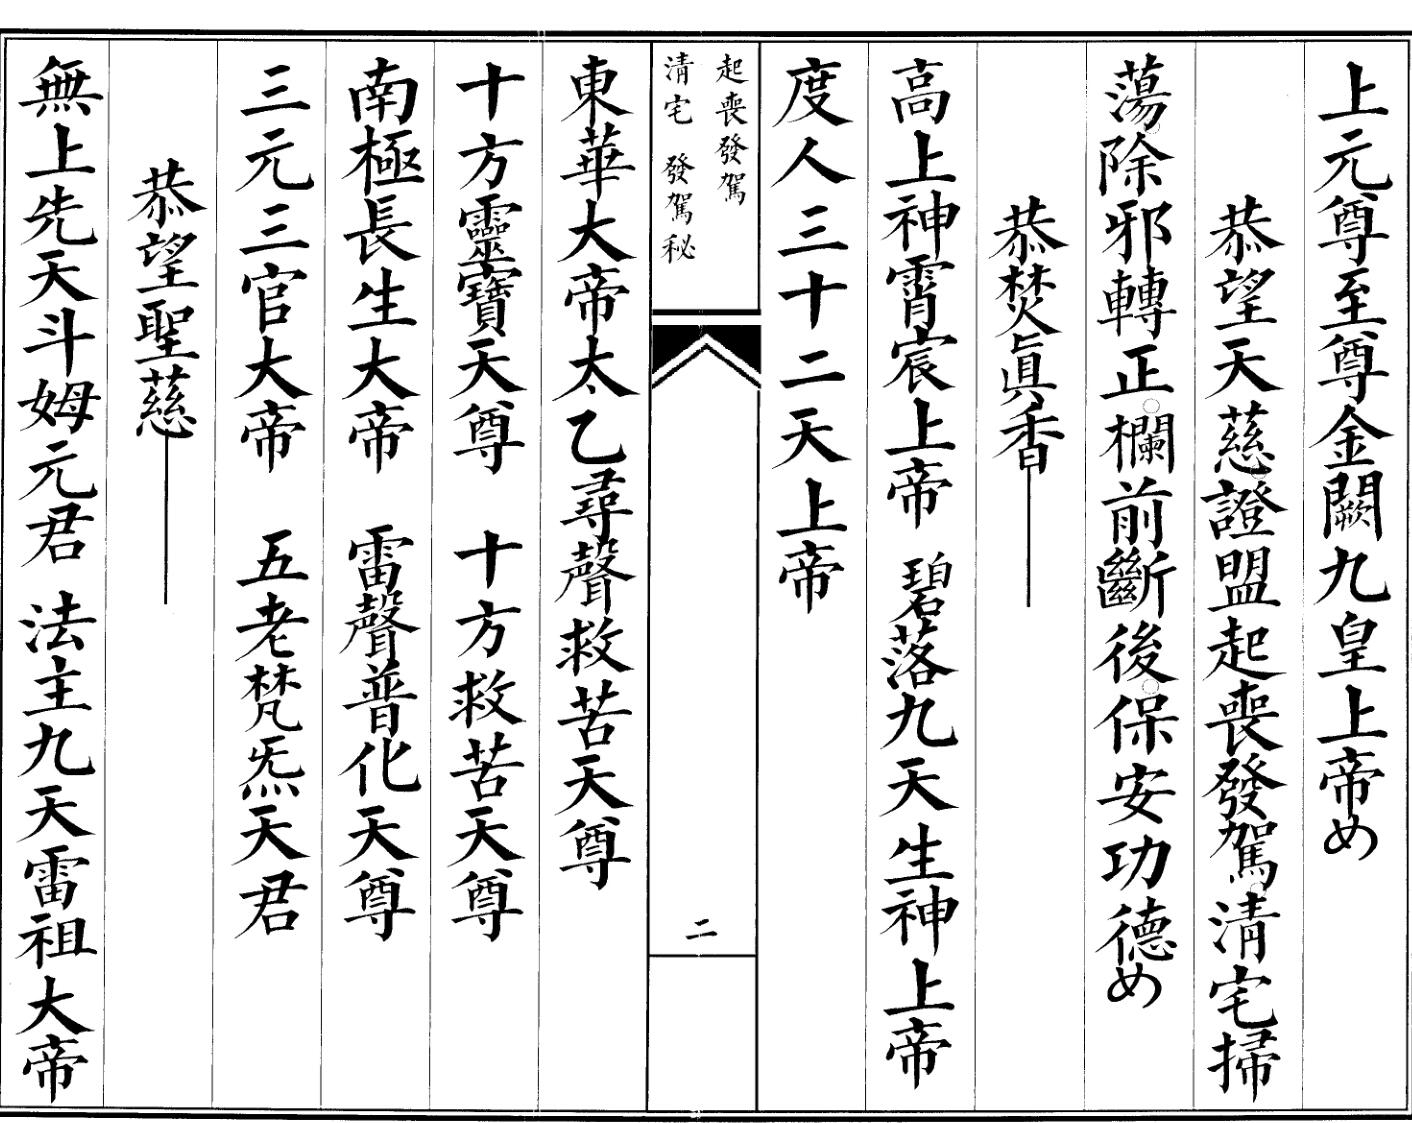 上元尊至尊金闕九皇上帝め
恭望天慈證盟起喪發駕清宅掃
蕩除邪轉正欄前斷後保安功德め
恭焚眞香
高上神霄宸上帝 碧落九天生神上帝
度人三十二天上帝
起喪發駕
清宅 發駕秘
二
東華大帝太乙尋聲救苦天尊
十方靈寶天尊 十方救苦天尊
南極長生大帝 雷聲普化天尊
三元三官大帝 五老梵炁天君
恭望聖慈
無上先天斗姆元君 法主九天雷祖大帝